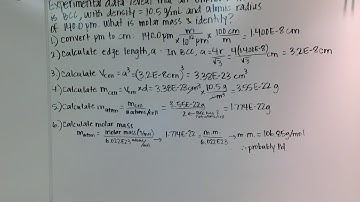 Experimental data reveal that an
is BCC, with density = 10.5 g/mL and atomic radius
of 140.0 pm. What is molar mass & identity?
1) convert pm to cm: 140.0 pm × m/10^12 pm × 100 cm/m = 1.400E-8 cm
2) calculate edge length, a - In BCC, a = 4r/√3 = 4(1.400E-8)/√3 cm = 3.2E-8 cm
3.) Calculate Vcell = a³ = (3.2E-8 cm)³ = 3.38E-23 cm³
4.) Calculate mcell = Vcell × d = 3.38E-23 cm³ × 10.5 g/cm³ = 3.55E-22 g
5) Calculate matom = mcell/# atoms/cell = 3.55E-22 g/2 = 1.774E-22 g
6.) Calculate molar mass
matom = molar mass (g/mol)/6.022E23 atoms/mol → 1.774E-22 = m.m./6.022E23 → m.m. = 106.85 g/mol
∴ probably Pd